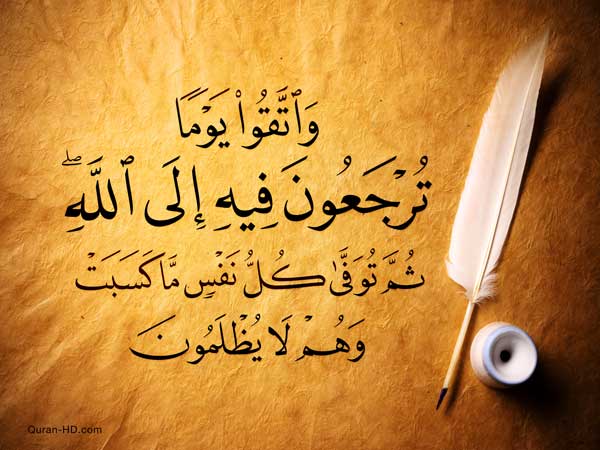 وَٱتَّقُوا۟ يَوْمًا
تُرْجَعُونَ فِيهِ إِلَى ٱللَّهِ ۖ
ثُمَّ تُوَفَّىٰ كُلُّ نَفْسٍ مَّا كَسَبَتْ
وَهُمْ لَا يُظْلَمُونَ
Quran-HD.com